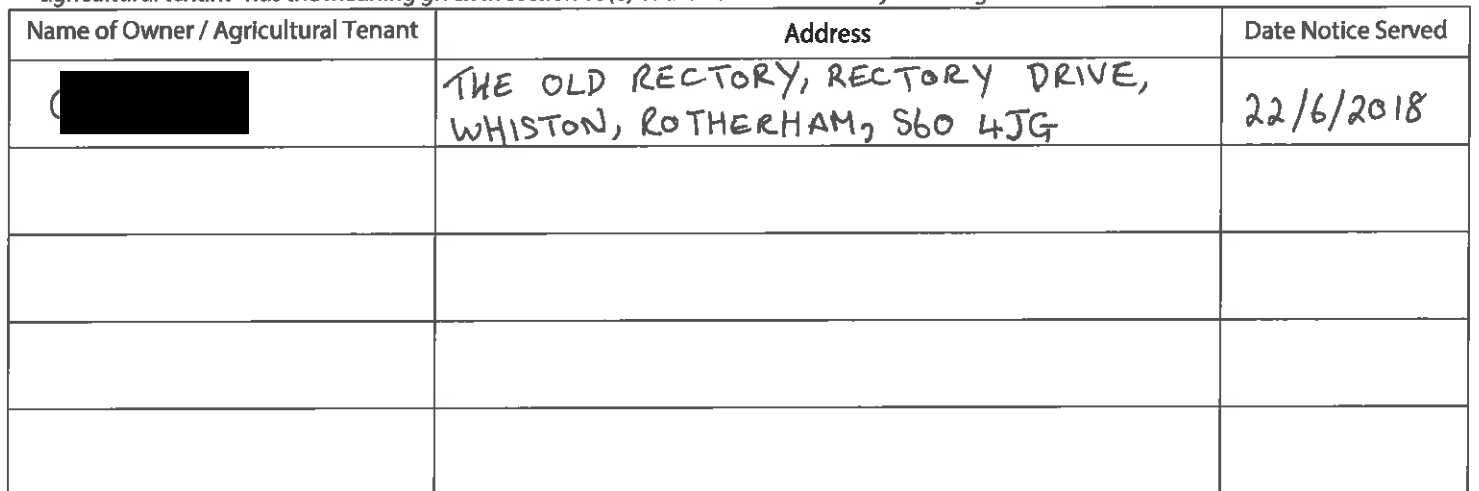 Name of Owner / Agricultural Tenant Address Date Notice Served
THE OLD RECTORY, RECTORY DRIVE,
WHISTON, ROTHERHAM, S60 4JG
22/6/2018